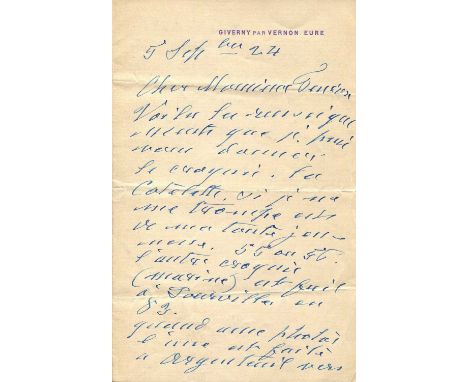 GIVERNY PAR VERNON EURE
5 Sept bre 24
Cher Monsieur
Voilà les renseigne
ments que je puis
vous donner
le croquis. La
Catelette, si je ne
me trompe est
de ma toute jeu-
nesse. 55 ou 56.
l'autre croquis
(marine) est fait
à Pourville en
83.
quand aux photos
l'une est faite
à Argenteuil vers